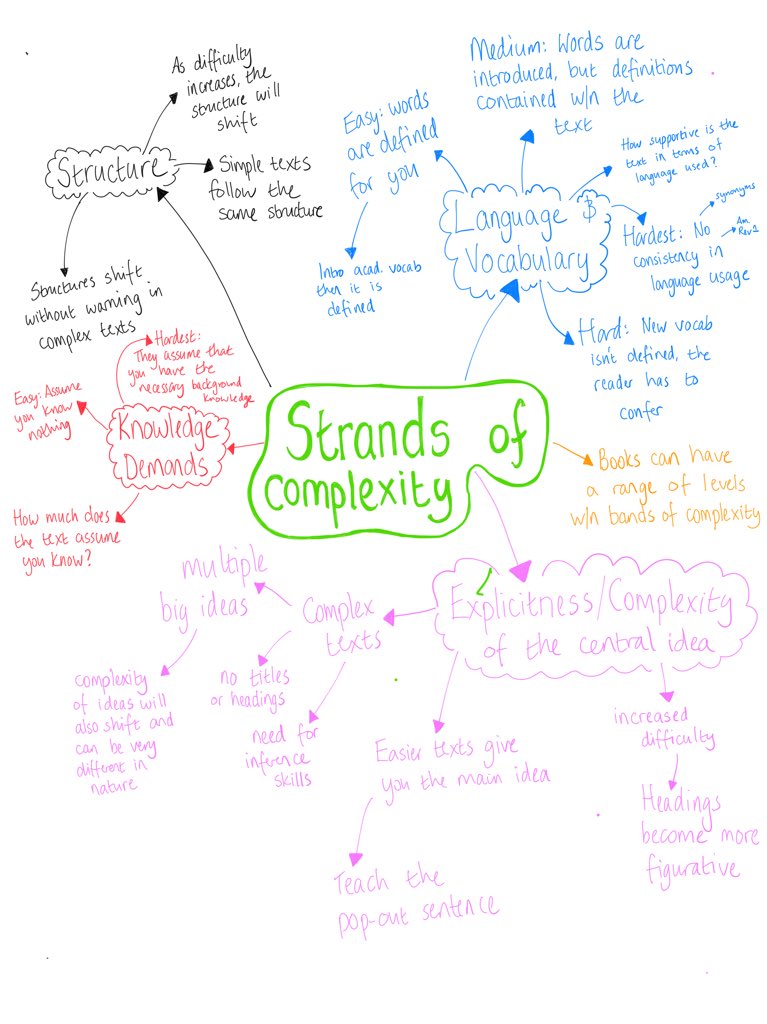 As difficulty
increases, the
structure will
shift
Structure
Simple texts
follow the
same structure
Structures shift
without warning in
complex texts
Medium: Words are
introduced, but definitions
contained w/n the
text
Easy: words
are defined
for you
How supportive is the
text in terms of
language used?
Language &
Vocabulary
synonyms
Hardest: No
consistency in
language usage
Am.
Rev.
Intro acad. vocab
then it is
defined
Hard: New vocab
isn't defined, the
reader has to
confer
Hardest:
They assume that
you have the
necessary background
knowledge
Easy: Assume
you know
nothing
Knowledge
Demands
How much does
the text assume
you know?
Strands of
Complexity
Books can have
a range of levels
w/n bands of complexity
Explicitness/Complexity
of the central idea
multiple
big ideas
Complex
texts
complexity
of ideas will
also shift and
can be very
different in
nature
no titles
or headings
need for
inference
skills
Easier texts give
you the main idea
Teach the
pop-out sentence
increased
difficulty
Headings
become more
figurative